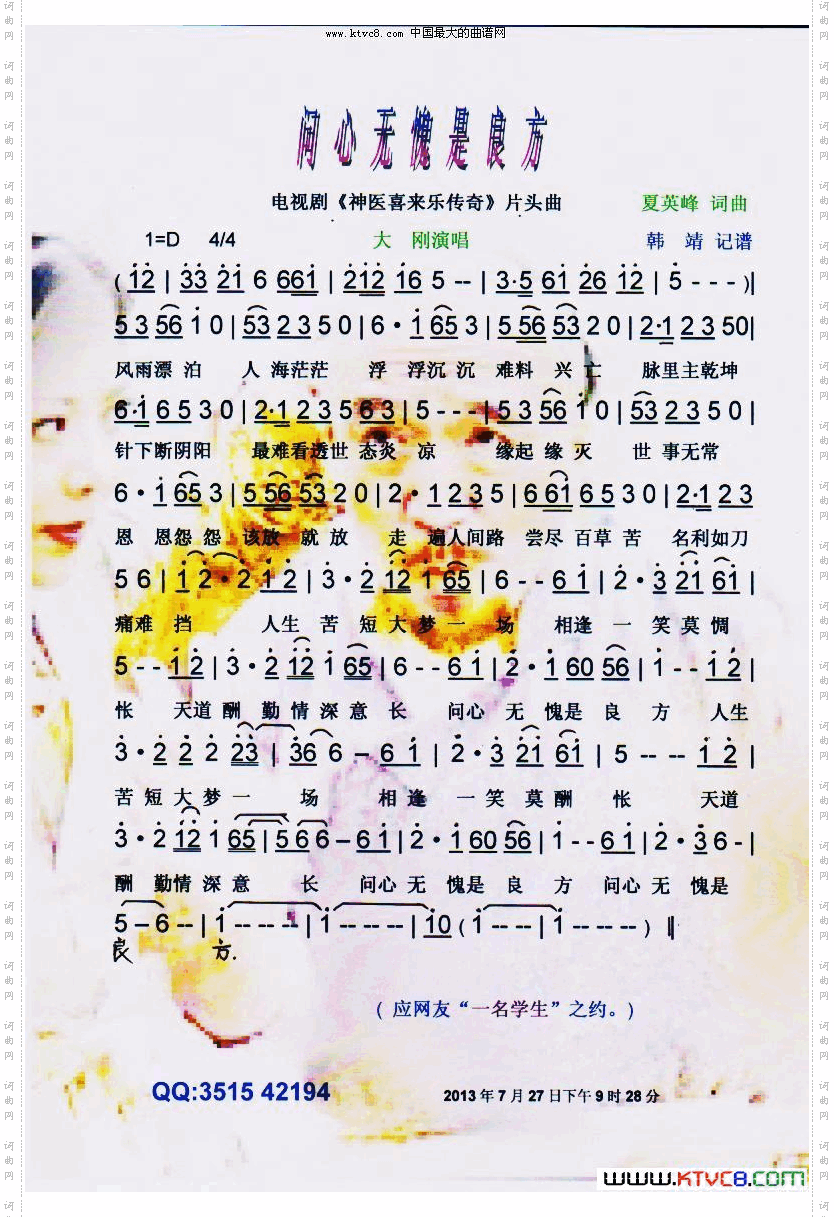 www.ktvc8.com 中国最大的曲谱网
问心无愧是良方
电视剧《神医喜来乐传奇》片头曲 夏英峰 词曲
1=D 4/4 大 刚演唱 韩 靖 记谱
( 12 | 33 21 6 661 | 212 16 5 -- | 3·5 61 26 12 | 5 - - - )|
5 3 56 1 0 | 53 2 3 5 0 | 6 · 1 65 3 | 5 56 53 2 0 | 2·1 2 3 50 |
风雨漂 泊 人 海茫茫 浮 浮沉 沉 难料 兴 亡 脉里主乾坤
6·1 6 5 3 0 | 2·1 2 3 5 6 3 | 5 - - - | 5 3 56 1 0 | 53 2 3 5 0 |
针下断阴阳 最难看透世 态炎 凉 缘起 缘 灭 世 事无常
6 · 1 65 3 | 5 56 53 2 0 | 2 · 1 2 3 5 | 6 61 6 5 3 0 | 2·1 2 3
恩 恩怨 怨 该放 就 放 走 遍人间路 尝尽 百草 苦 名利如刀
5 6 | 1 2 · 2 1 2 | 3 · 2 12 1 65 | 6 - - 6 1 | 2 · 3 21 61 |
痛难 挡 人生 苦 短大 梦 一 场 相逢 一 笑 莫 惆
5 - - 1 2 | 3 · 2 12 1 65 | 6 - - 6 1 | 2 · 1 60 56 | 1 - - 1 2 |
怅 天道 酬 勤 情 深 意 长 问心 无 愧是 良 方 人生
3 · 2 2 2 23 | 36 6 – 6 1 | 2 · 3 21 61 | 5 -- -- 1 2 |
苦 短 大 梦 一 场 相 逢 一 笑 莫 酬 怅 天道
3 · 2 12 1 65 | 5 6 6 – 6 1 | 2 · 1 60 56 | 1 - - 6 1 | 2 · 3 6 - |
酬 勤情 深 意 长 问心 无 愧是 良 方 问心 无 愧是
5 – 6 -- | 1 -- -- -- | 1 -- -- -- | 10 ( 1 -- -- | 1 -- -- ) ‖
良 方.
( 应网友“一名学生”之约。)
QQ:3515 42194 2013 年 7 月 27 日下午 9 时 28 分
www.KTVC8.com